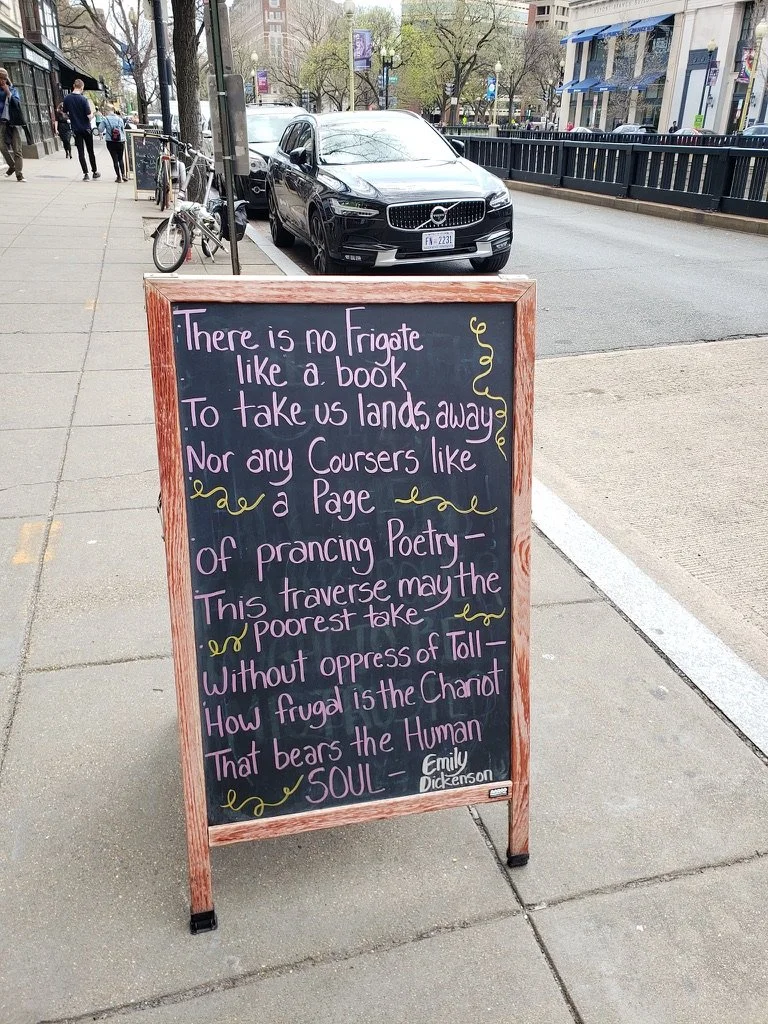 There is no Frigate
like a book
To take us lands away
Nor any Coursers like
a Page
of prancing Poetry—
This traverse may the
poorest take
Without oppress of Toll—
How frugal is the Chariot
That bears the Human
SOUL—
Emily
Dickenson
FN 2231